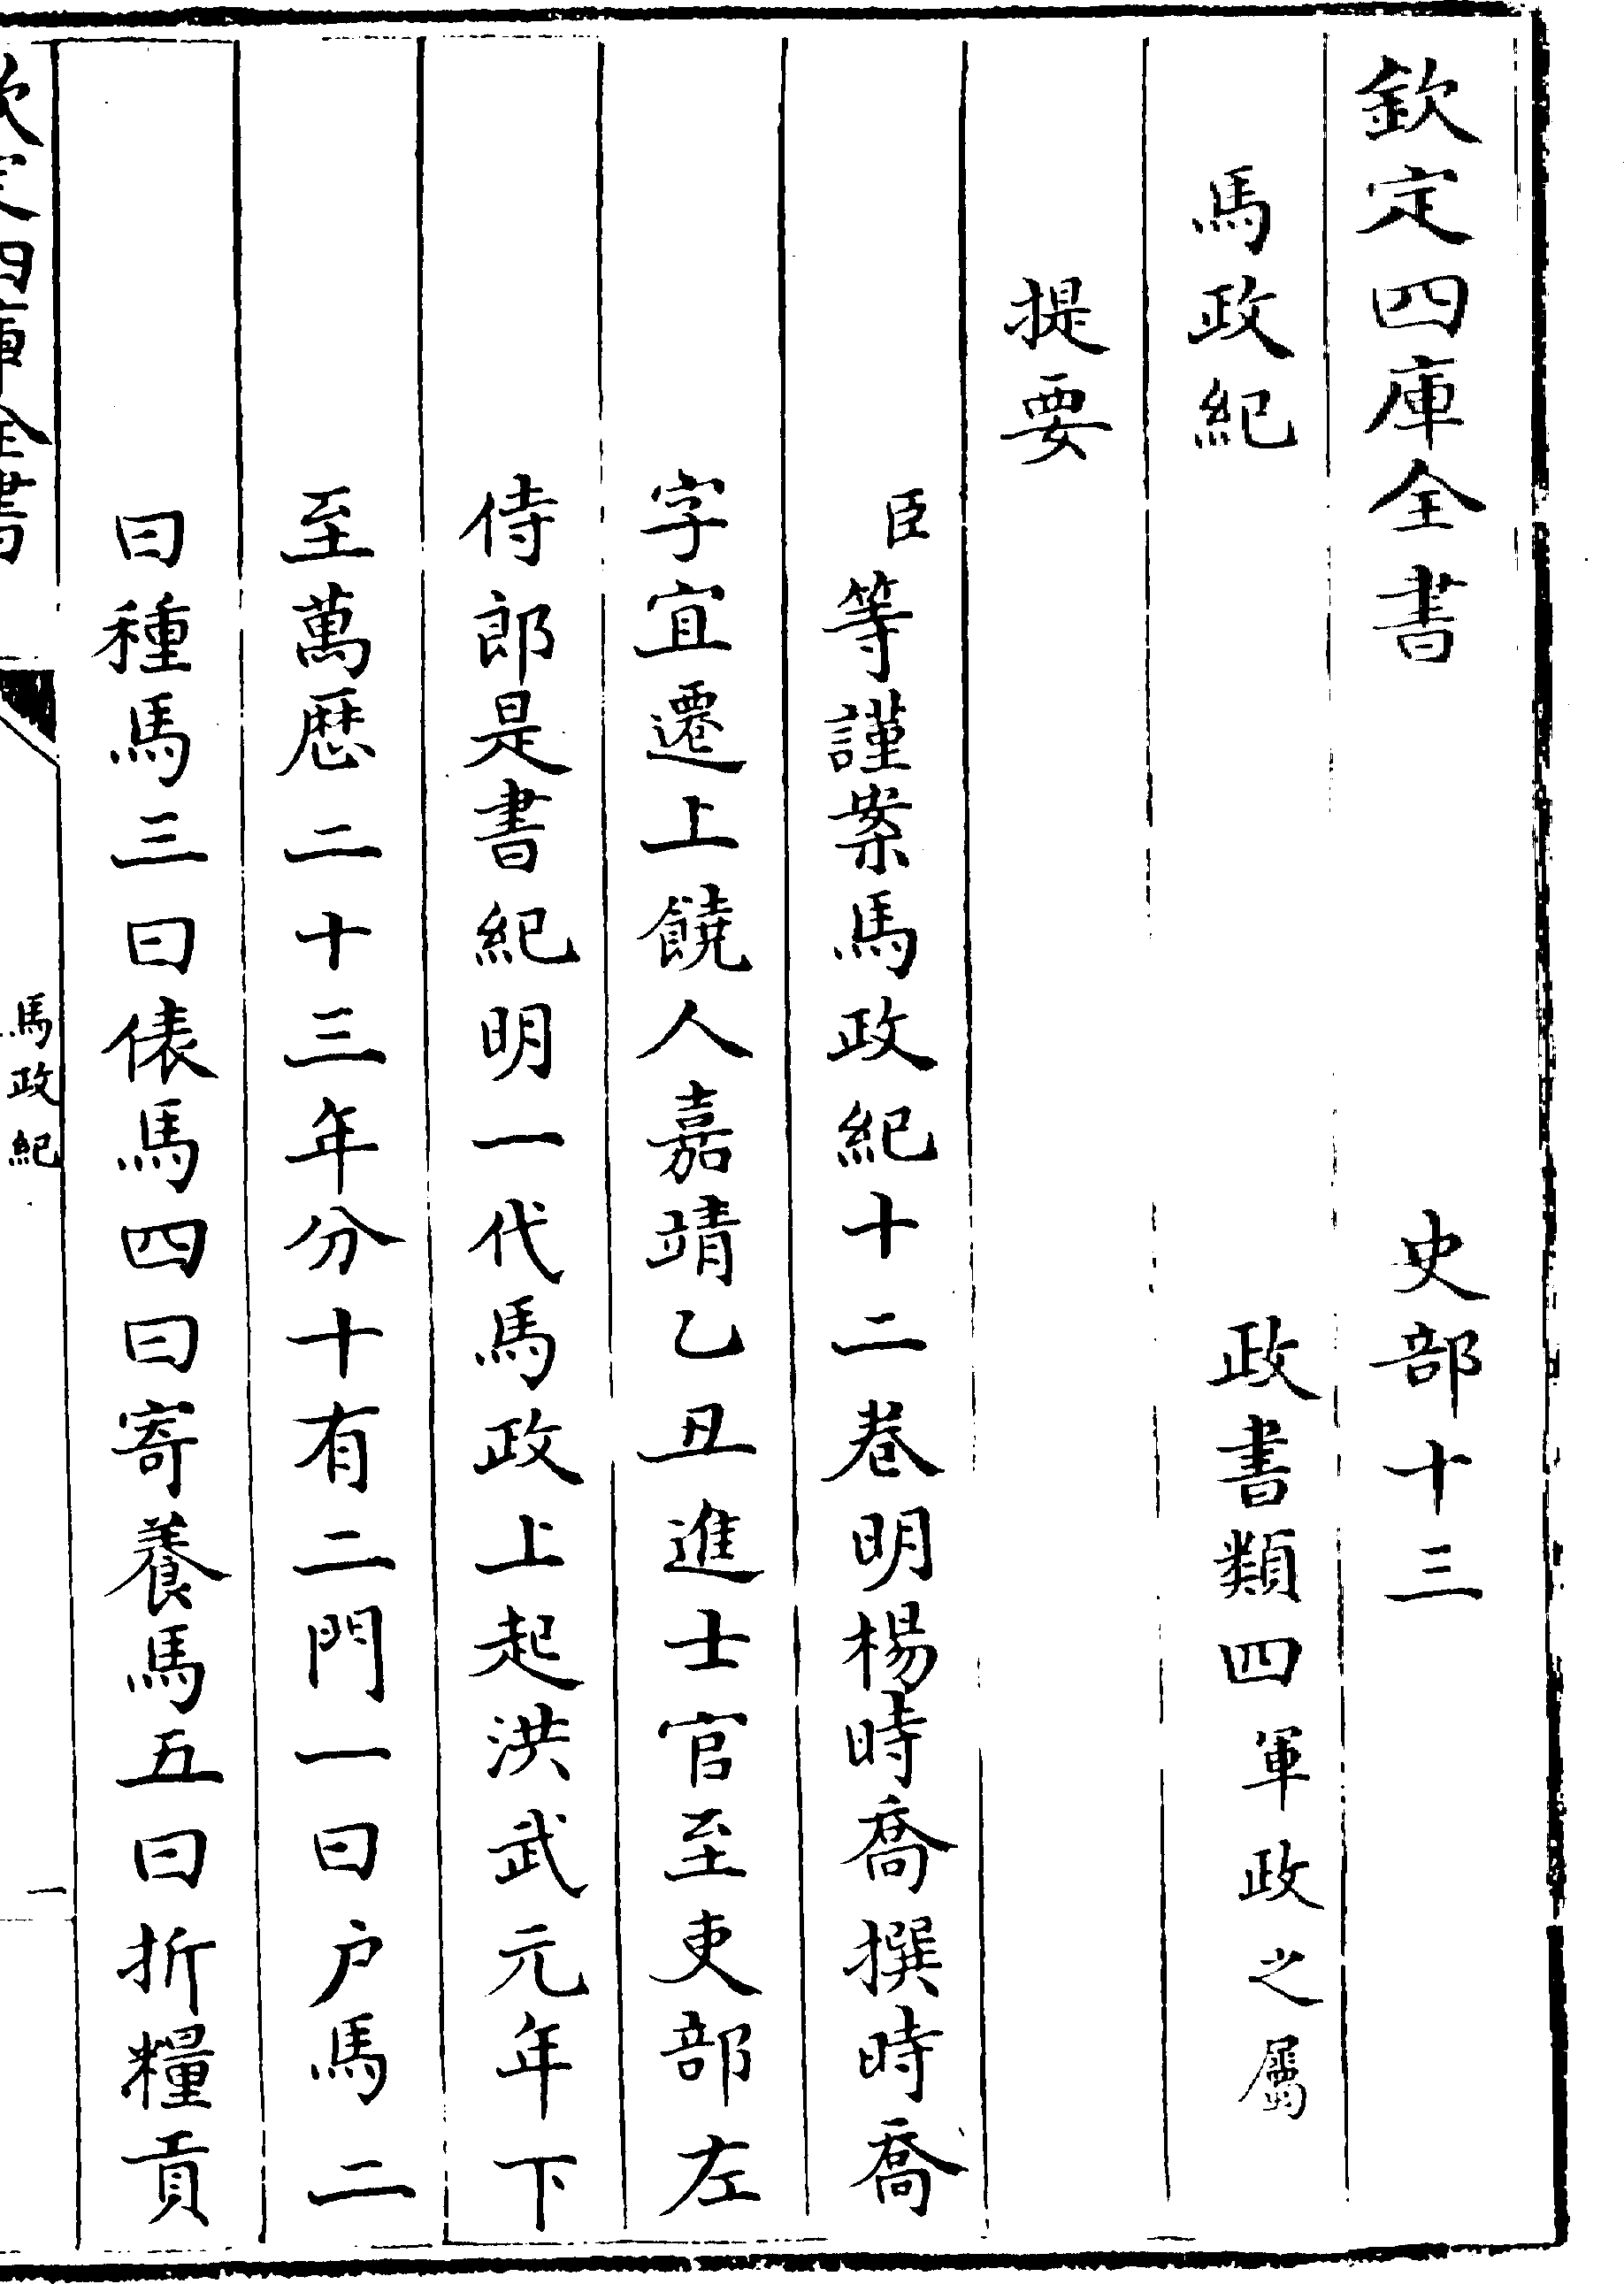 欽定四庫全書　史部十三
馬政紀　政書類四軍政之屬
提要
臣等謹案馬政紀十二巻明楊時喬撰時喬
字宜遷上饒人嘉靖乙丑進士官至吏部左
侍郎是書紀明一代馬政上起洪武元年下
至萬歴二十三年分十有二門一曰户馬二
曰種馬三曰俵馬四曰寄養馬五曰折糧貢
欽定四庫全書　馬政紀　一